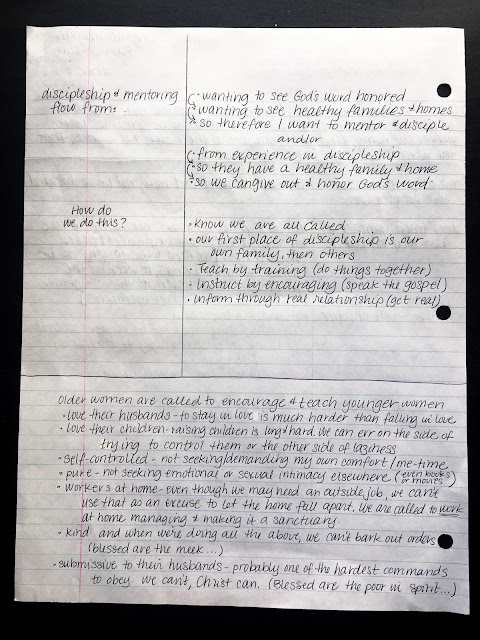 discipleship & mentoring
flow from:
· wanting to see God's word honored
· wanting to see healthy families & homes
· so therefore I want to mentor & disciple
and/or
· from experience in discipleship
· so they have a healthy family & home
· so we can give out & honor God's word
How do
we do this?
· Know we are all called
· our first place of discipleship is our
own family, then others
· Teach by training (do things together)
· Instruct by encouraging (speak the gospel)
· inform through real relationship (get real)
Older women are called to encourage & teach younger women
· love their husbands - to stay in love is much harder than falling in love
· love their children - raising children is long & hard. We can err on the side of
trying to control them or the other side of laziness
· self-controlled - not seeking/demanding my own comfort / me-time
· pure - not seeking emotional or sexual intimacy elsewhere (even books
or movies)
· workers at home - even though we may need an outside job, we can't
use that as an excuse to let the home fall apart. We are called to work
at home managing & making it a sanctuary.
· kind and when we're doing all the above, we can't bark out orders
(blessed are the meek...)
· submissive to their husbands - probably one of the hardest commands
to obey. we can't, Christ can. (Blessed are the poor in spirit...)